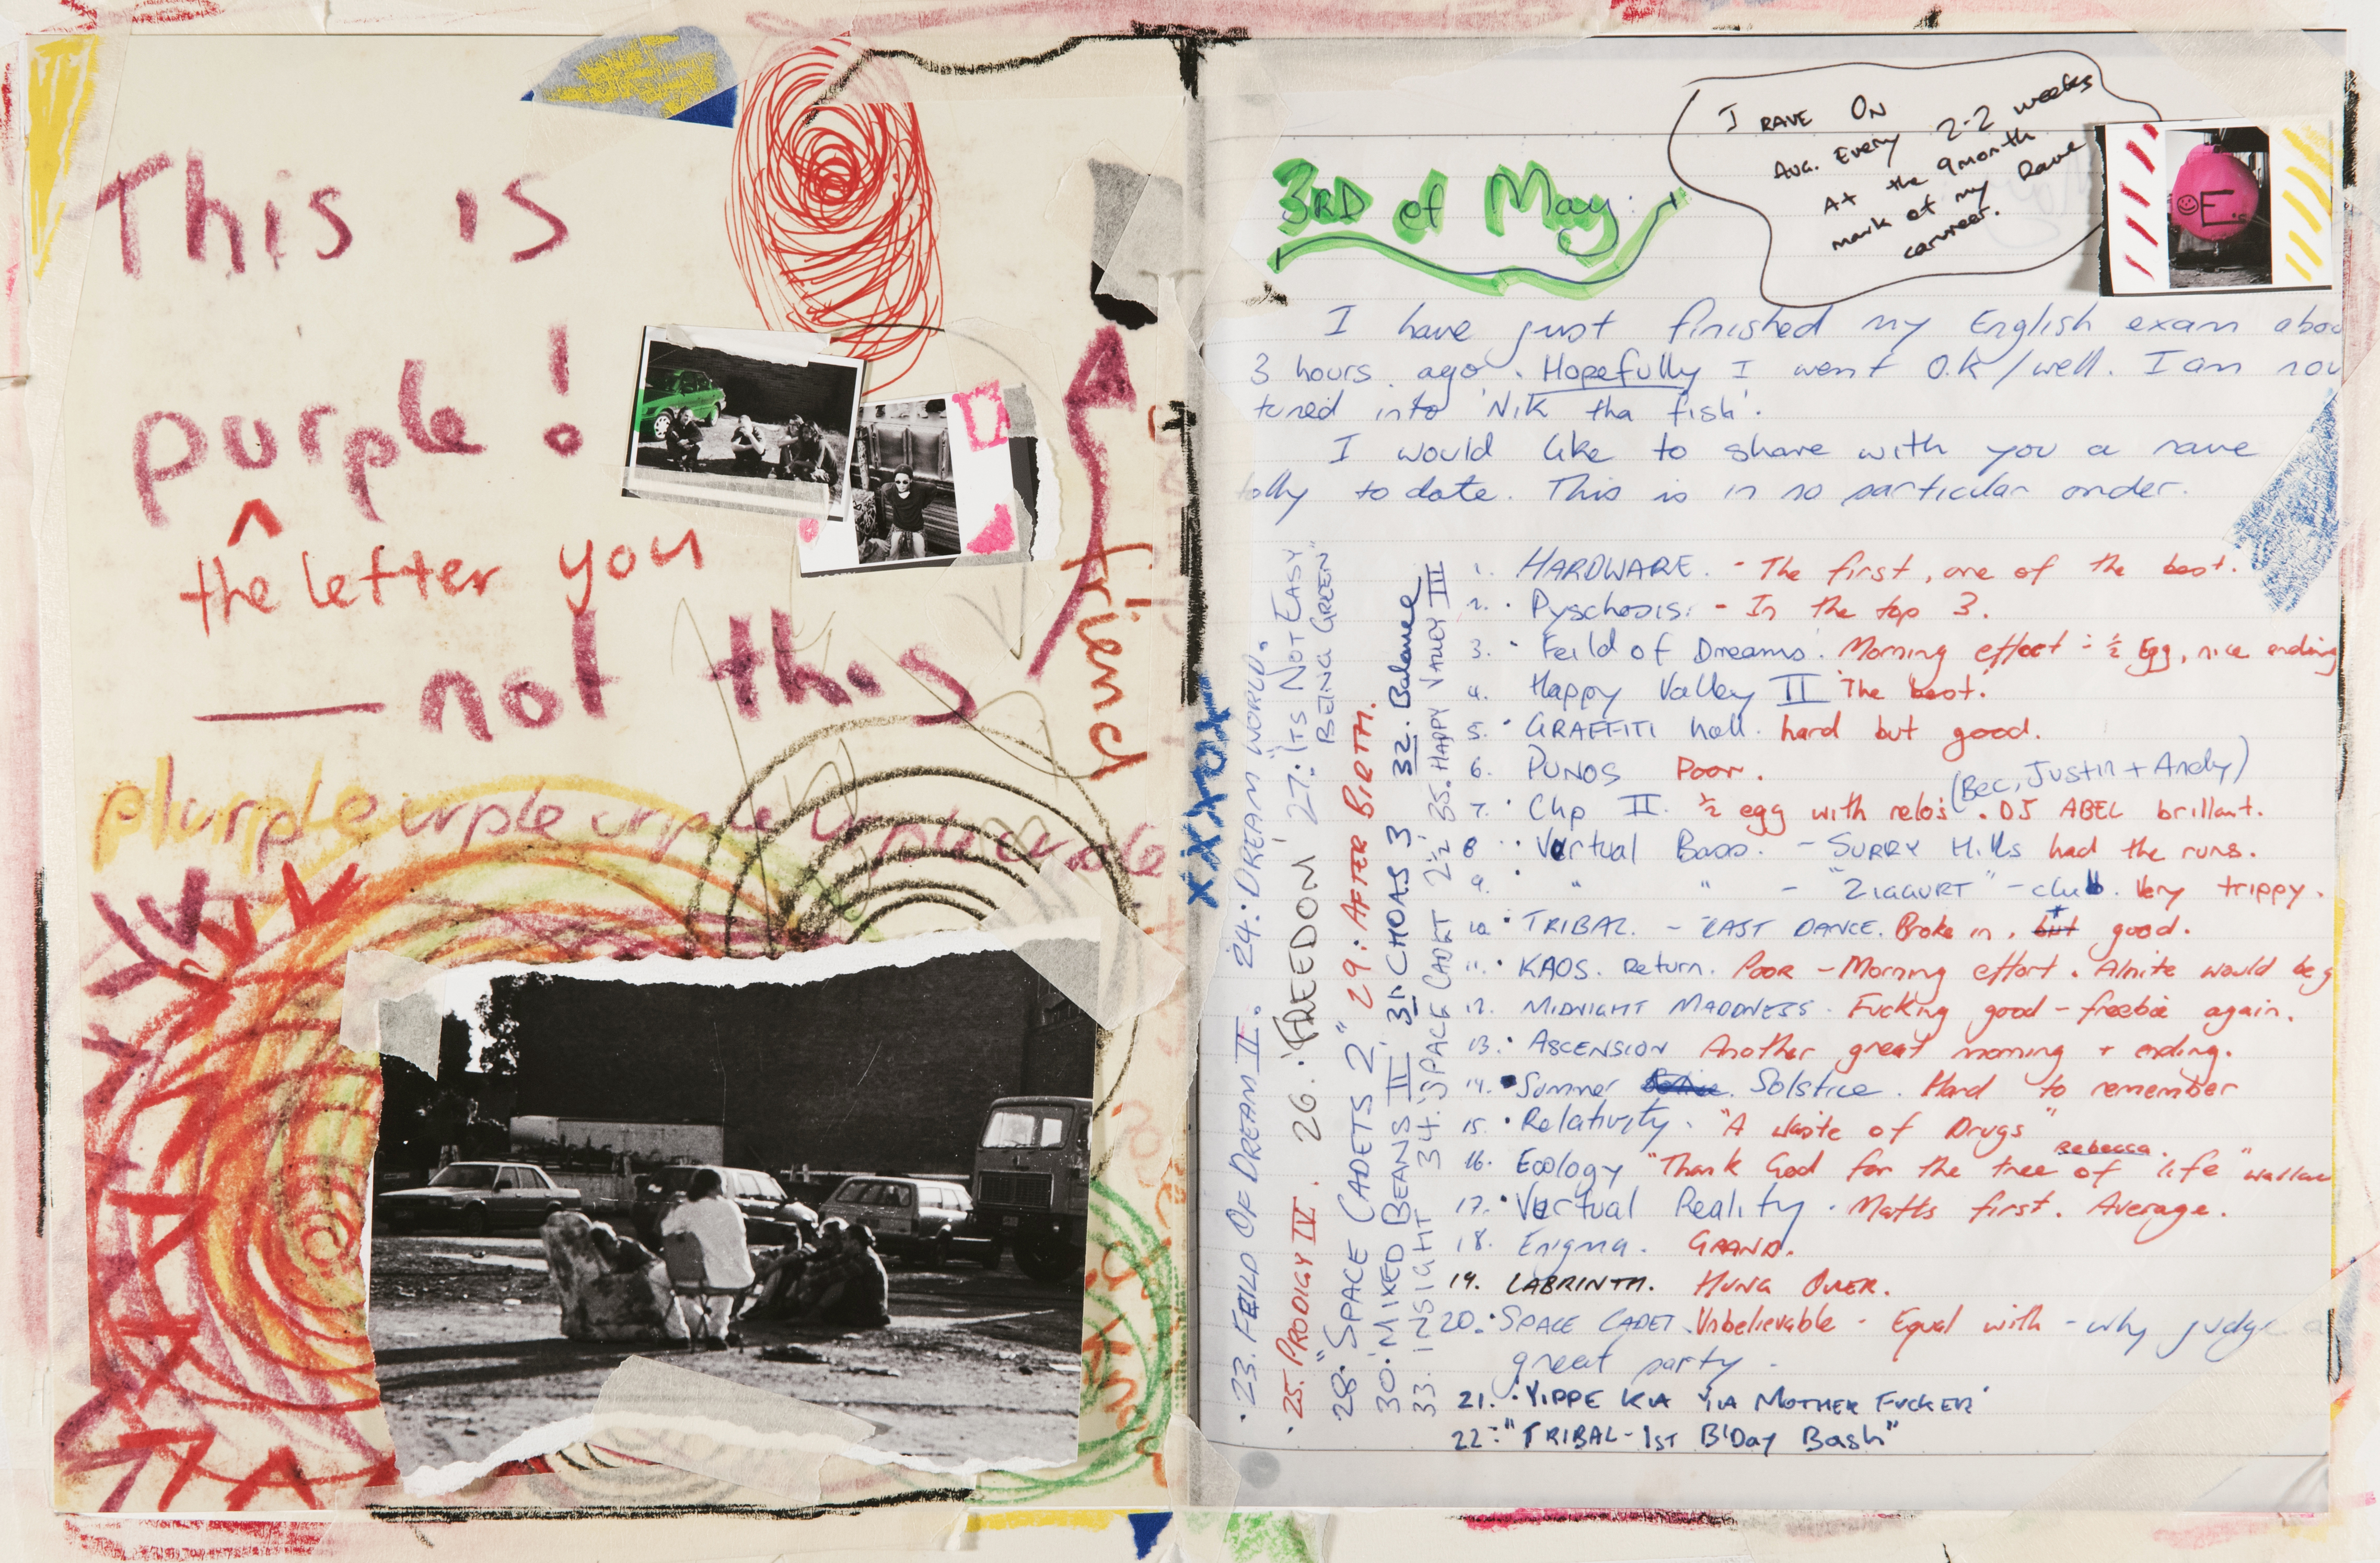 This is
purple!
^
the letter you
— not this
friend
plurple urple urple urple urple
xxxxox
I RAVE ON
AVG. Every 2-2 weeks
At the 9month
mark of my Rave
carvreer.
☺E's
3RD of May:
I have just finished my English exam abou
3 hours ago. Hopefully I went O.K/well. I am now
tuned into 'Nik tha fish'.
I would like to share with you a rave
tolly to date. This is in no particular order.
1. HARDWARE. - The first, one of the best.
2. Pyschosis: - In the top 3.
3. Feild of Dreams. Morning effort - ½ Egg, nice ending
4. Happy Valley II 'The best.'
5. GRAFFITI hall. hard but good.
6. PUNOS Poor.
(Bec, Justin + Andy)
7. Chp II. ½ egg with relos. DJ ABEL brillant.
8. Vertual Bass. - SURRY Hills had the runs.
9. " " - "ZIGGURT" - club. Very trippy.
10. TRIBAL. - LAST DANCE. Broke in, but good.
11. KAOS. Return. Poor - Morning effort. Alnite would be g
12. MIDNIGHT MADDNESS. Fucking good - freebie again.
13. ASCENSION Another great morning + ending.
14. Summer Solstice. Hard to remember
15. Relativity. "A waste of Drugs"
Rebecca.
16. Ecology "Thank God for the tree of life" wallace
17. Vertual Reality. Matts first. Average.
18. Enigma. GRAND.
19. LABRINTH. HUNG OVER.
20. SPACE CADET. Unbelievable - Equal with - why judge a
great party -
21. 'YIPPE KIA YIA MOTHER FUCKER'
22. "TRIBAL - 1ST B'Day Bash"
23. FEILD OF DREAM II.
24. DREAM WORLD.
25. PRODIGY IV.
26. 'FREEDOM'
27. "ITS NOT EASY
BEING GREEN"
28. "SPACE CADETS 2"
29. AFTER BIRTH.
30. MIKED BEANS II
31. CHOAS 3
32. Balance
33. INSIGHT
34. SPACE CADET 2½
35. HAPPY VALLEY III